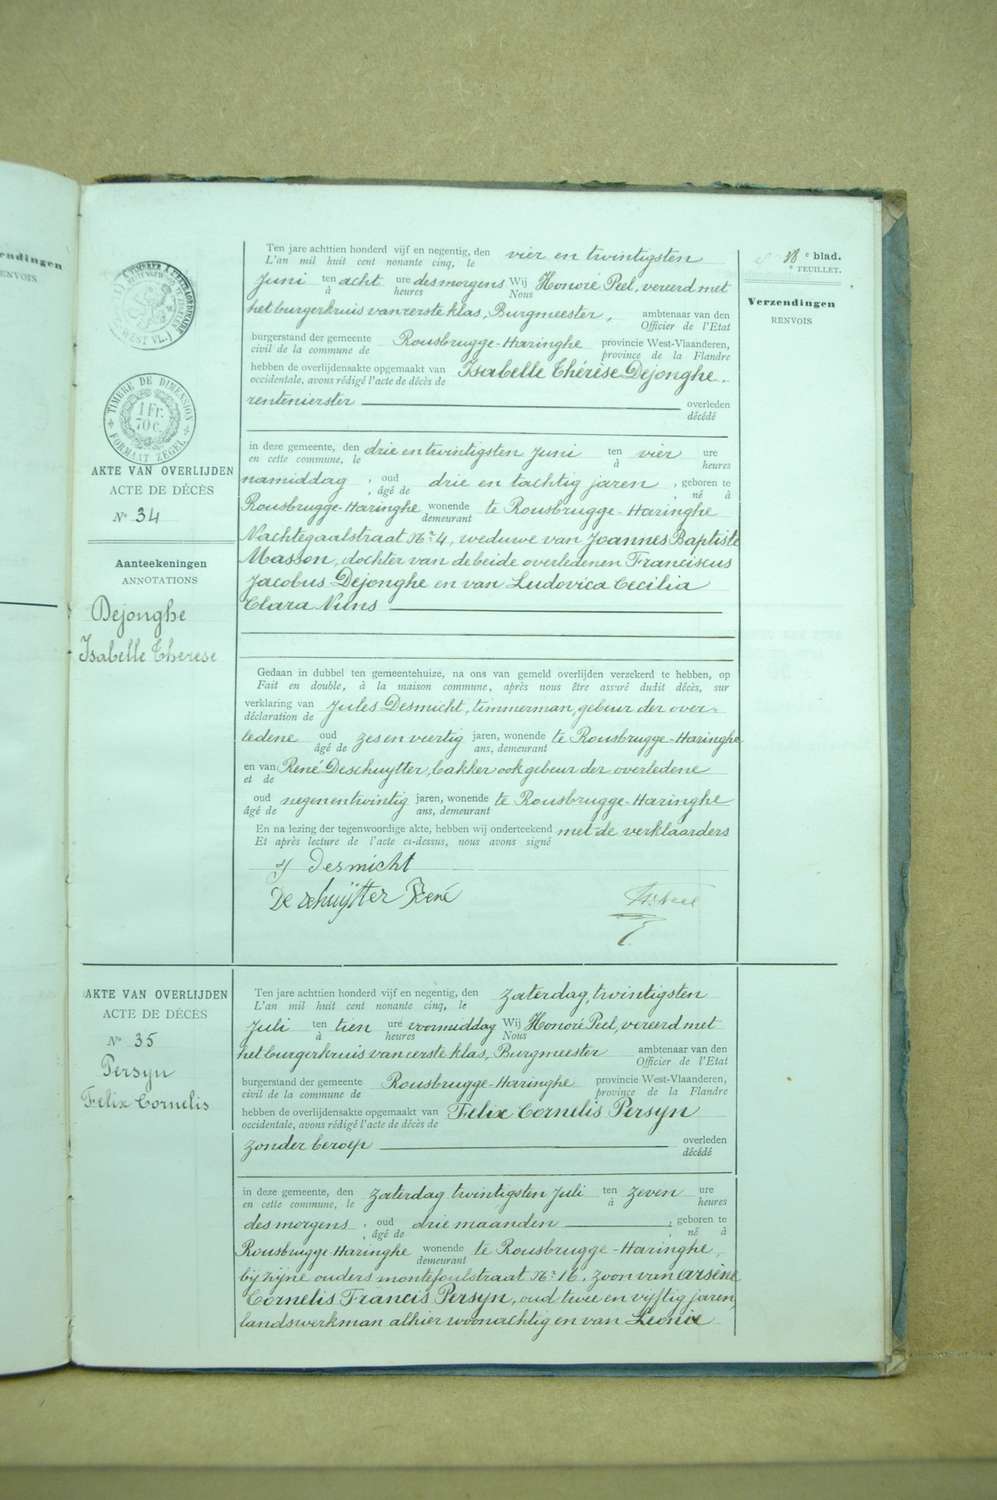 endingen
RENVOIS
18e blad.
e FEUILLET.
Verzendingen
RENVOIS
TIMBRE DE DIMENSION
1 Fr.
70 c.
FORMAAT ZEGEL
AKTE VAN OVERLIJDEN
ACTE DE DÉCÈS
N° 34
Aanteekeningen
ANNOTATIONS
Dejonghe
Isabelle Therese
Ten jare achttien honderd vijf en negentig, den vier en twintigsten
L'an mil huit cent nonante cinq, le
Juni ten acht ure des morgens Wij Honoré Peel, vereerd met
à heures Nous
het burgerkruis van eerste klas, Burgmeester, ambtenaar van den
Officier de l'Etat
burgerstand der gemeente Rousbrugge-Haringhe provincie West-Vlaanderen,
civil de la commune de province de la Flandre
hebben de overlijdensakte opgemaakt van Isabelle Thérèse Dejonghe.
occidentale, avons rédigé l'acte de décès de
rentenierster overleden
décédé
in deze gemeente, den drie en twintigsten Juni ten vier ure
en cette commune, le à heures
namiddag, oud drie en tachtig jaren, geboren te
, âgé de , né à
Rousbrugge-Haringhe wonende te Rousbrugge-Haringhe
demeurant
Nachtegaalstraat Nr 4, weduwe van Joannes Baptiste
Masson, dochter van de beide overledenen Franciscus
Jacobus Dejonghe en van Ludovica Cecilia
Clara Nuns
Gedaan in dubbel ten gemeentehuize, na ons van gemeld overlijden verzekerd te hebben, op
Fait en double, à la maison commune, après nous être assuré dudit décès, sur
verklaring van Jules Desmicht, timmerman, gebuur der over-
déclaration de
ledene oud zes en veertig jaren, wonende te Rousbrugge-Haringhe
âgé de ans, demeurant
en van René Deschuytter, bakker ook gebuur der overledene
et de
oud negenentwintig jaren, wonende te Rousbrugge-Haringhe
âgé de ans, demeurant
En na lezing der tegenwoordige akte, hebben wij onderteekend met de verklaarders
Et après lecture de l'acte ci-dessus, nous avons signé
J Desmicht
Deschuÿtter René
AKTE VAN OVERLIJDEN
ACTE DE DÉCÈS
N° 35
Persyn
Felix Cornelis
Ten jare achttien honderd vijf en negentig, den zaterdag, twintigsten
L'an mil huit cent nonante cinq, le
Juli ten tien ure voormiddag Wij Honoré Peel, vereerd met
à heures Nous
het burgerkruis van eerste klas, Burgmeester ambtenaar van den
Officier de l'Etat
burgerstand der gemeente Rousbrugge-Haringhe provincie West-Vlaanderen,
civil de la commune de province de la Flandre
hebben de overlijdensakte opgemaakt van Felix Cornelis Persyn
occidentale, avons rédigé l'acte de décès de
zonder beroep overleden
décédé
in deze gemeente, den zaterdag twintigsten Juli ten zeven ure
en cette commune, le à heures
des morgens, oud drie maanden, geboren te
, âgé de , né à
Rousbrugge-Haringhe wonende te Rousbrugge-Haringhe,
demeurant
bij zijne ouders montefoulstraat Nr 16, zoon van Arsène
Cornelis Francis Persyn, oud twee en vyftig jaren,
landswerkman alhier woonachtig en van Leonie